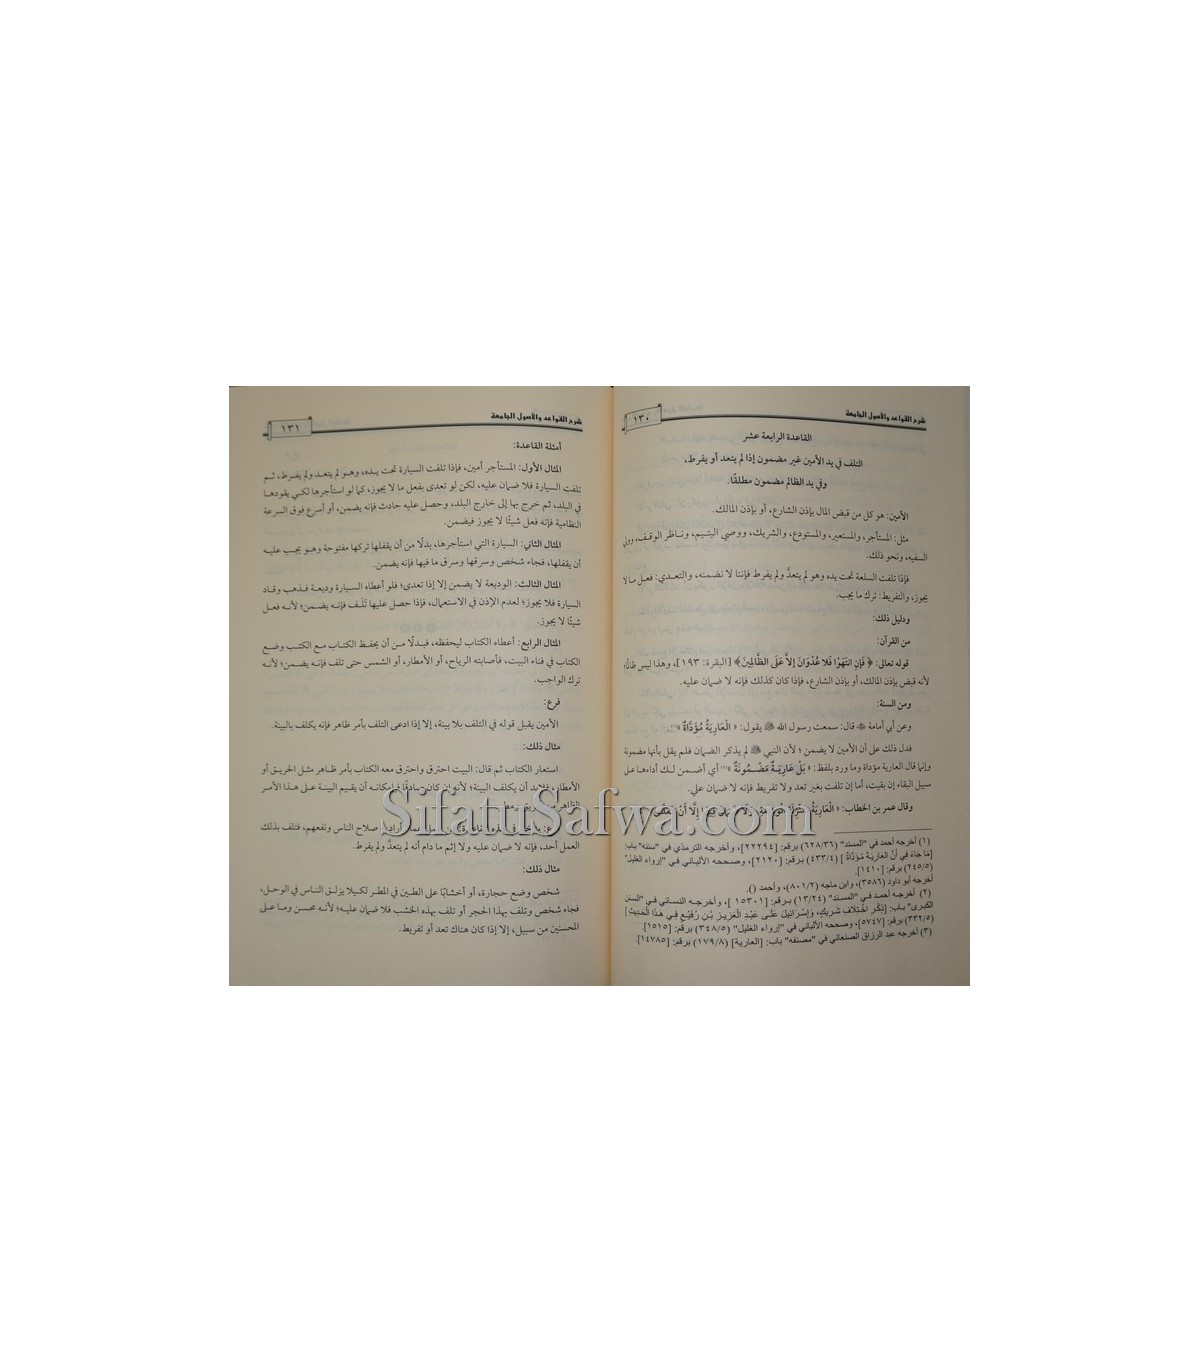 شرح القواعد والأصول الجامعة
١٣٠
القاعدة الرابعة عشر
التلف في يد الأمين غير مضمون إذا لم يتعد أو يفرط،
وفي يد الظالم مضمون مطلقًا.
الأمين: هو كل من قبض المال بإذن الشارع، أو بإذن المالك.
مثل: المستأجر، والمستعير، والمستودع، والشريك، ووصي اليتيم، وناظر الوقف، وولي
السفيه، ونحو ذلك.
فإذا تلفت السلعة تحت يده وهو لم يتعدَّ ولم يفرط فإننا لا نضمنه، والتعدي: فعل ما لا
يجوز، والتفريط: ترك ما يجب.
ودليل ذلك:
من القرآن:
قوله تعالى: ﴿ فَإِنِ انتَهَوْا فَلا عُدْوَانَ إلاَّ عَلَى الظَّالِمِينَ﴾ [البقرة: ١٩٣]، وهذا ليس ظالمًا؛
لأنه قبض بإذن المالك، أو بإذن الشارع، فإذا كان كذلك فإنه لا ضمان عليه.
ومن السنة:
وعن أبي أمامة ﷺ قال: سمعت رسول الله ﷺ يقول: « الْعَارِيَةُ مُؤَدَّاةٌ »(١).
فدل ذلك على أن الأمين لا يضمن ؛ لأن النبي ﷺ لم يذكر الضمان فلم يقل بأنها مضمونة
وإنما قال العارية مؤداة وما ورد بلفظ: « بَلْ عَارِيَـةٌ مَضْـمُونَةٌ »(٢) أي أضمن لك أداءها على
سبيل البقاء إن بقيت، أما إن تلفت بغير تعد ولا تفريط فإنه لا ضمان علي.
وقال عمر بن الخطاب: « الْعَارِيَةُ بِمَنْزِلَةِ الْوَدِيعَةِ، وَلَا ضَمَانَ فِيهَا إِلَّا أَنْ يَتَعَدَّى »(٣).
(١) أخرجه أحمد في "المسند" (٦٢٨/٣٦) برقم: [٢٢٢٩٤]، وأخرجه الترمذي في "سننه" باب:
[مَا جَاءَ فِي أَنَّ العَارِيَةَ مُؤَدَّاةٌ ] (٤٣٣/٤) برقم: [٢١٢٠]، وصححه الألباني في "إرواء الغليل"
(٢٤٥/٥) برقم: [١٤١٠].
أخرجه أبو داود (٣٥٨٦)، وابن ماجه (٨٠١/٢)، وأحمد ().
(٢) أخرجه أحمد في "المسند" (١٣/٢٤) برقم: [١٥٣٠١ ]، وأخرجه النسائي في "السنن
الكبرى" باب: [ذِكْرِ اخْتِلَافِ شَرِيكٍ، وَإِسْرَائِيلَ عَلَى عَبْدِ الْعَزِيزِ بْنِ رُفَيْعٍ فِي هَذَا الْحَدِيثِ]
(٣٣٢/٥) برقم: [٥٧٤٧]، وصححه الألباني في "إرواء الغليل" (٣٤٨/٥) برقم: [١٥١٥].
(٣) أخرجه عبد الرزاق الصنعاني في "مصنفه" باب: [العارية] (١٧٩/٨) برقم: [١٤٧٨٥].
شرح القواعد والأصول الجامعة
١٣١
أمثلة القاعدة:
المثال الأول: المستأجر أمين، فإذا تلفت السيارة تحت يده، وهو لم يتعد ولم يفرط، ثم
تلفت السيارة فلا ضمان عليه، لكن لو تعدى بفعل ما لا يجوز، كما لو استأجرها لكي يقودها
في البلد، ثم خرج بها إلى خارج البلد، وحصل عليه حادث فإنه يضمن، أو أسرع فوق السرعة
النظامية فإنه فعل شيئًا لا يجوز فيضمن.
المثال الثاني: السيارة التي استأجرها، بدلًا من أن يقفلها تركها مفتوحة وهو يجب عليه
أن يقفلها، فجاء شخص وسرقها وسرق ما فيها فإنه يضمن.
المثال الثالث: الوديعة لا يضمن إلا إذا تعدى؛ فلو أعطاه السيارة وديعة فذهب وقاد
السيارة فلا يجوز؛ لعدم الإذن في الاستعمال، فإذا حصل عليها تَلَف فإنه يضمن؛ لأنه فعل
شيئًا لا يجوز.
المثال الرابع: أعطاه الكتاب ليحفظه، فبدلًا من أن يحفظ الكتاب مع الكتب وضع
الكتاب في فناء البيت، فأصابته الرياح، أو الأمطار، أو الشمس حتى تلف فإنه يضمن؛ لأنه
ترك الواجب.
فرع:
الأمين يقبل قوله في التلف بلا بينة، إلا إذا ادعى التلف بأمر ظاهر فإنه يكلف بالبينة.
مثال ذلك:
استعار الكتاب ثم قال: البيت احترق واحترق معه الكتاب بأمر ظاهر مثل الحريق أو
الأمطار، فلابد أن يكلف البينة؛ لأنه إن كان صادقًا فبإمكانه أن يقيم البينة على هذا الأمر
الظاهر
صلاح الناس ونفعهم، فتلف بذلك
العمل أحد، فإنه لا ضمان عليه ولا إثم ما دام أنه لم يتعدَّ ولم يفرط.
مثال ذلك:
شخص وضع حجارة، أو أخشابًا على الطين في المطر لكيلا يزلق الناس في الوحل،
فجاء شخص وتلف بهذا الحجر أو تلف بهذه الخشب فلا ضمان عليه؛ لأنه محسن وما على
المحسنين من سبيل، إلا إذا كان هناك تعد أو تفريط.
SifatuSafwa.com